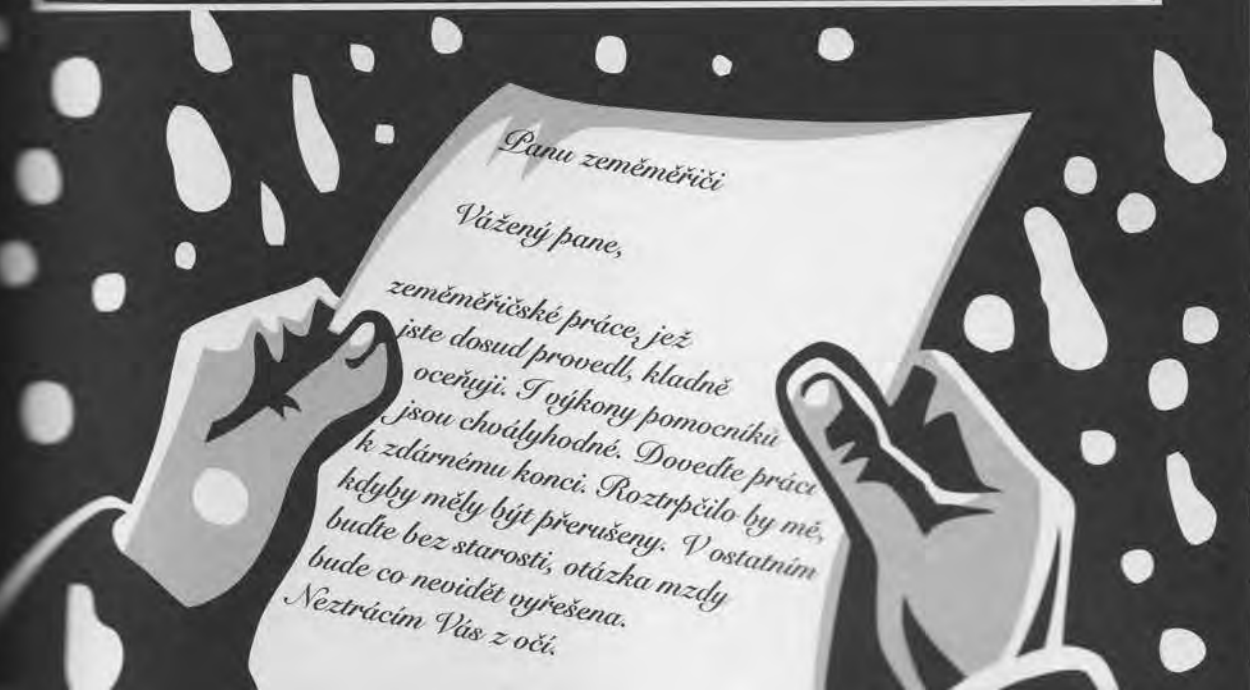 Panu zeměměřiči
Vážený pane,
zeměměřičské práce, jež
jste dosud provedl, kladně
oceňuji. I výkony pomocníků
jsou chvályhodné. Doveďte práci
k zdárnému konci. Roztrpčilo by mě,
kdyby měly být přerušeny. V ostatním
buďte bez starosti, otázka mzdy
bude co nevidět vyřešena.
Neztrácím Vás z očí.